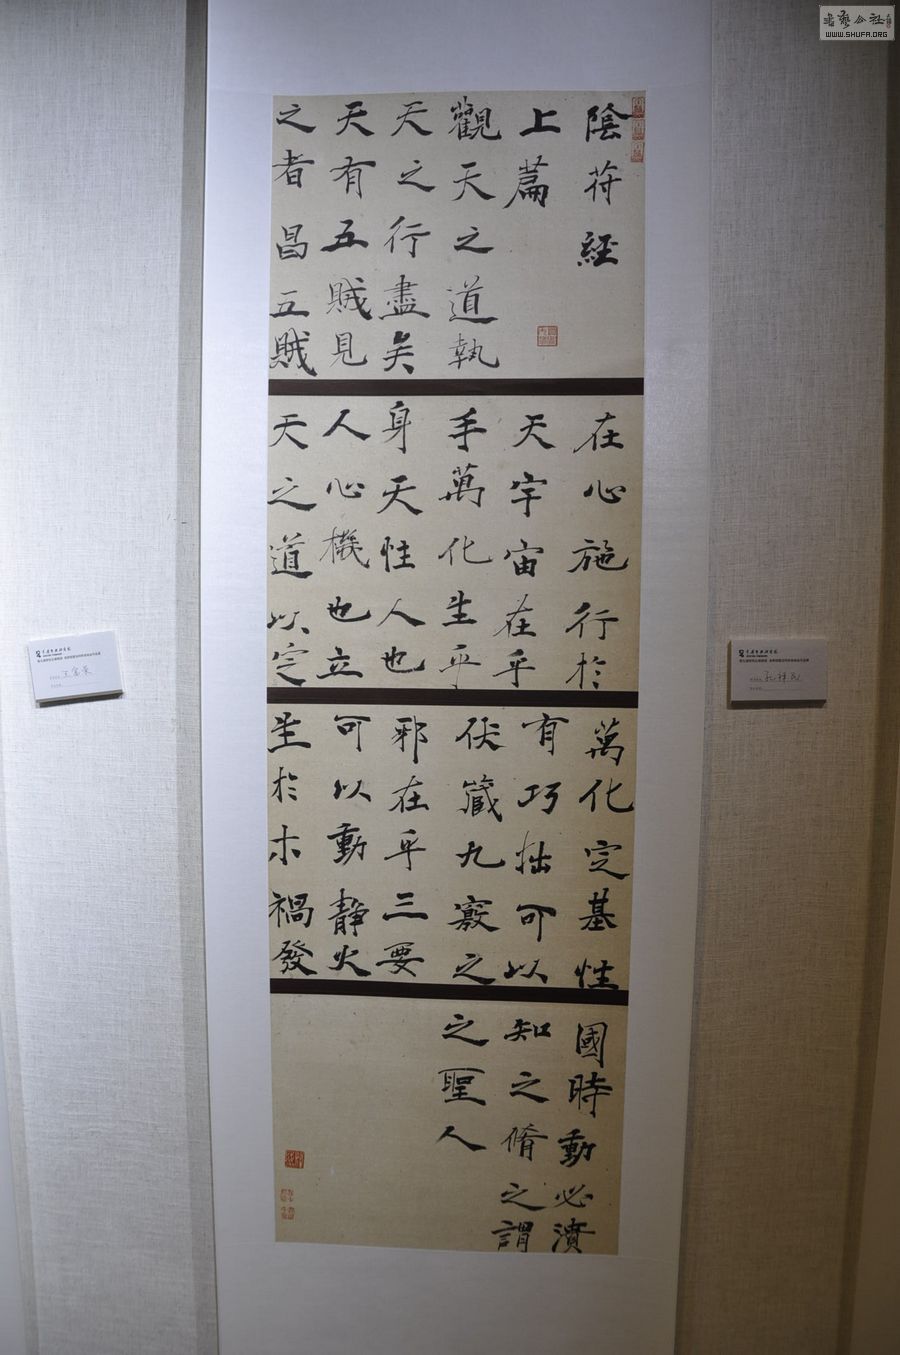 陰符經
上篇
觀天之道執
天之行盡矣
天有五賊見
之者昌五賊
在心施行於
天宇宙在乎
手萬化生乎
身天性人也
人心機也立
天之道以定
萬化定基性
有巧拙可以
伏藏九竅之
邪在乎三要
可以動靜火
生於木禍發
國時動必潰
知之脩之謂
之聖人
WWW.SHUFA.ORG